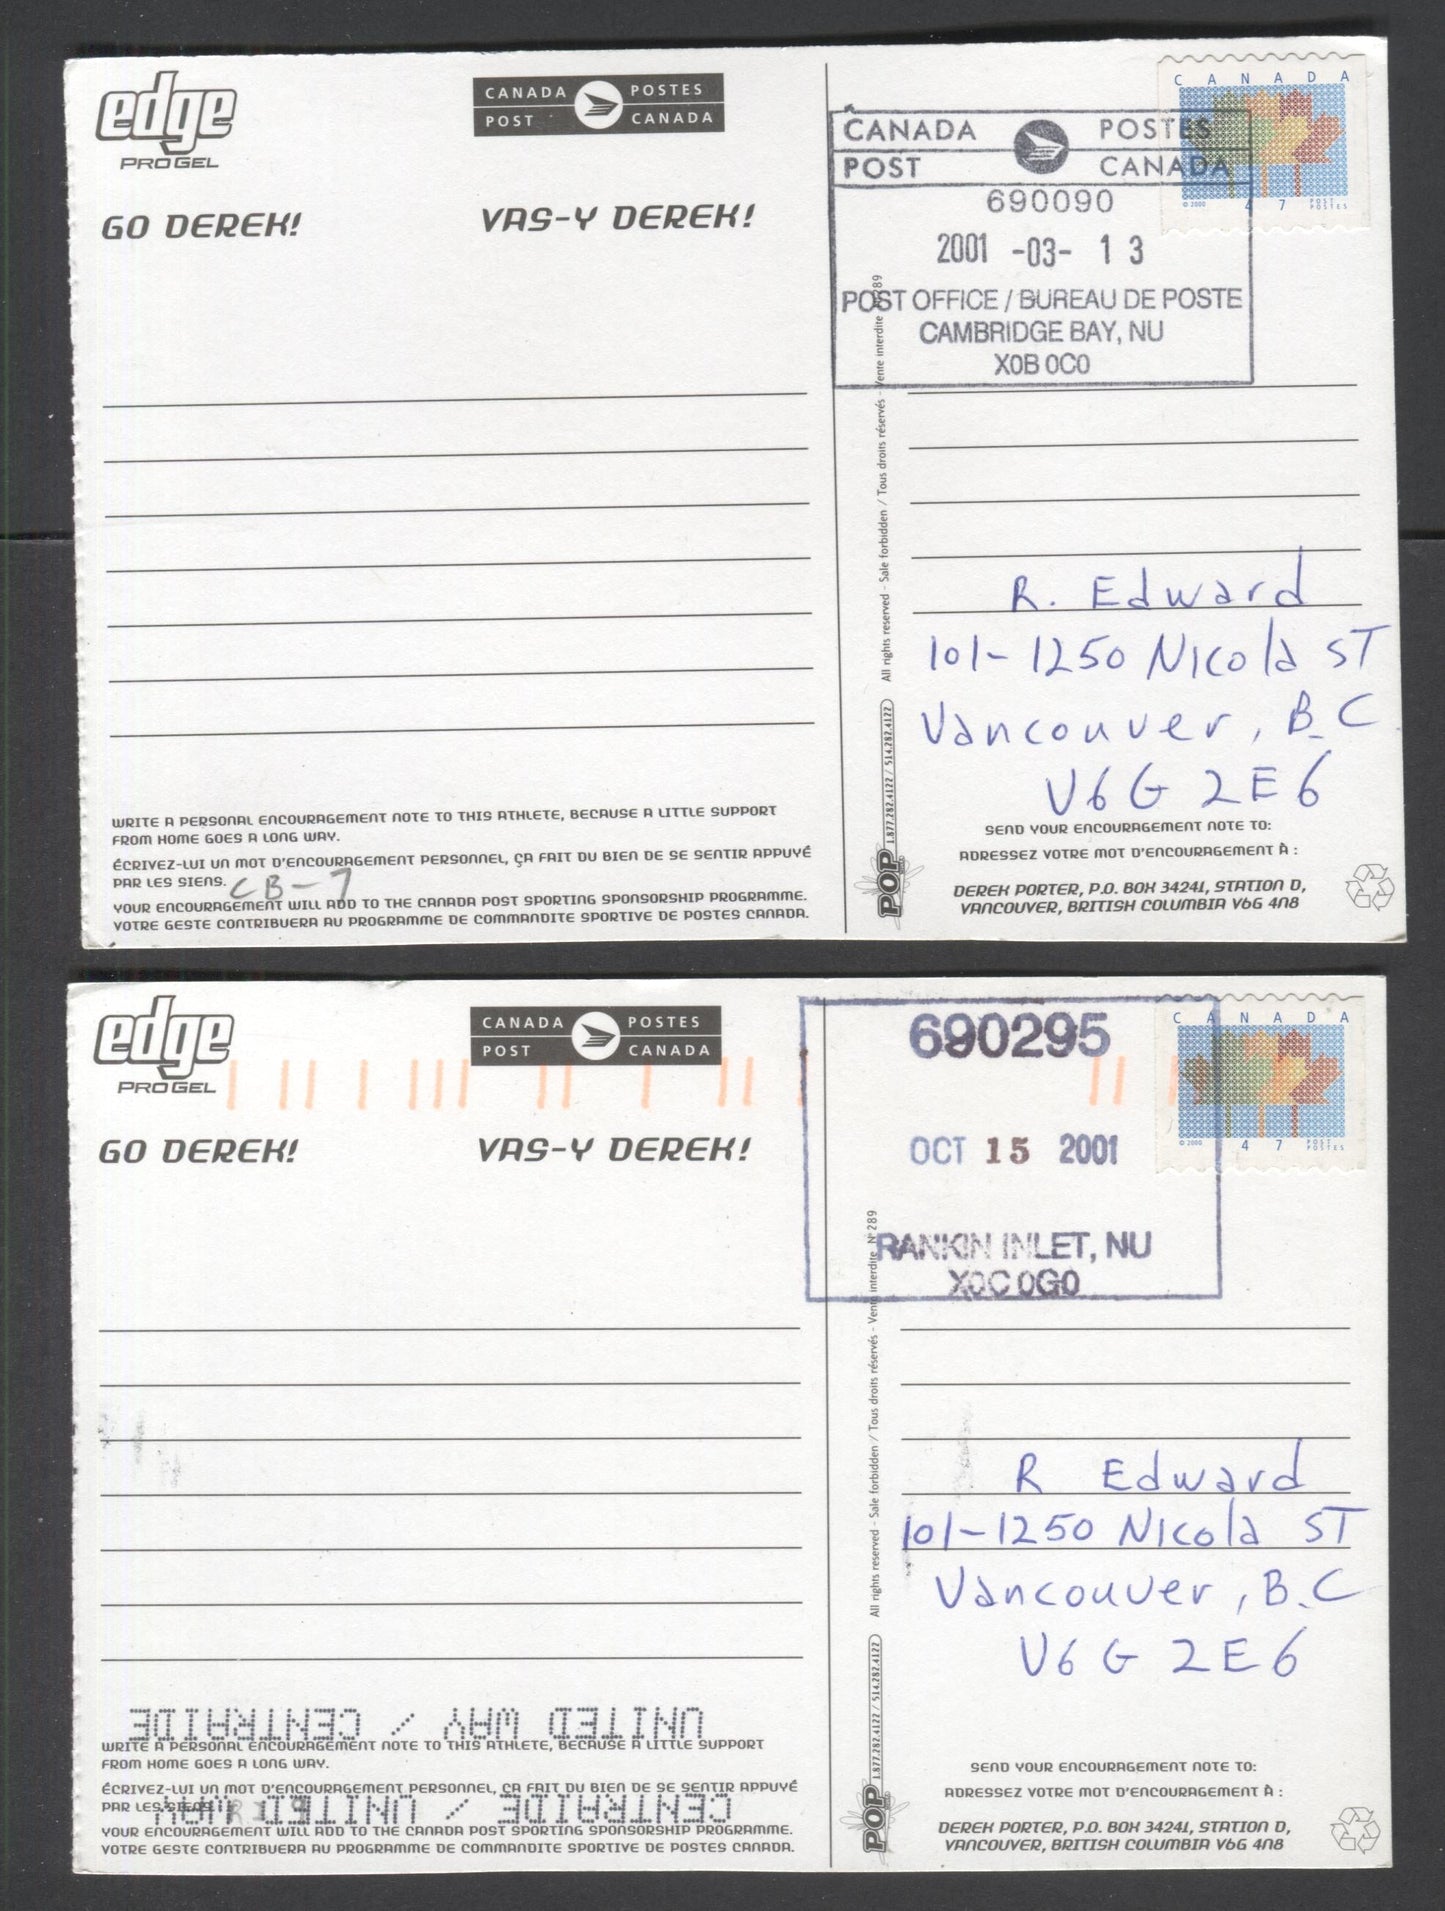 edge
PRO GEL
CANADA POSTES
POST CANADA
GO DEREK! VAS-Y DEREK!
CANADA
47
© 2000
POST
POSTES
CANADA POSTES
POST CANADA
690090
2001 -03- 13
POST OFFICE / BUREAU DE POSTE
CAMBRIDGE BAY, NU
X0B 0C0
R. Edward
101-1250 Nicola ST
Vancouver, B.C
V6G 2E6
WRITE A PERSONAL ENCOURAGEMENT NOTE TO THIS ATHLETE, BECAUSE A LITTLE SUPPORT
FROM HOME GOES A LONG WAY.
ÉCRIVEZ-LUI UN MOT D'ENCOURAGEMENT PERSONNEL, ÇA FAIT DU BIEN DE SE SENTIR APPUYÉ
PAR LES SIENS.
CB-7
YOUR ENCOURAGEMENT WILL ADD TO THE CANADA POST SPORTING SPONSORSHIP PROGRAMME.
VOTRE GESTE CONTRIBUERA AU PROGRAMME DE COMMANDITE SPORTIVE DE POSTES CANADA.
POP 1.877.282.4122 / 514.282.4122 All rights reserved - Sale forbidden / Tous droits réservés - Vente interdite N° 289
SEND YOUR ENCOURAGEMENT NOTE TO:
ADRESSEZ VOTRE MOT D'ENCOURAGEMENT À :
DEREK PORTER, P.O. BOX 34241, STATION D,
VANCOUVER, BRITISH COLUMBIA V6G 4N8
edge
PRO GEL
CANADA POSTES
POST CANADA
GO DEREK! VAS-Y DEREK!
CANADA
47
© 2000
POST
POSTES
690295
OCT 15 2001
RANKIN INLET, NU
X0C 0G0
R Edward
101-1250 Nicola ST
Vancouver, B.C
V6G 2E6
UNITED WAY / CENTRAIDE
WRITE A PERSONAL ENCOURAGEMENT NOTE TO THIS ATHLETE, BECAUSE A LITTLE SUPPORT
FROM HOME GOES A LONG WAY.
ÉCRIVEZ-LUI UN MOT D'ENCOURAGEMENT PERSONNEL, ÇA FAIT DU BIEN DE SE SENTIR APPUYÉ
PAR LES SIENS.
CENTRAIDE / UNITED WAY
YOUR ENCOURAGEMENT WILL ADD TO THE CANADA POST SPORTING SPONSORSHIP PROGRAMME.
VOTRE GESTE CONTRIBUERA AU PROGRAMME DE COMMANDITE SPORTIVE DE POSTES CANADA.
POP 1.877.282.4122 / 514.282.4122 All rights reserved - Sale forbidden / Tous droits réservés - Vente interdite N° 289
SEND YOUR ENCOURAGEMENT NOTE TO:
ADRESSEZ VOTRE MOT D'ENCOURAGEMENT À :
DEREK PORTER, P.O. BOX 34241, STATION D,
VANCOUVER, BRITISH COLUMBIA V6G 4N8